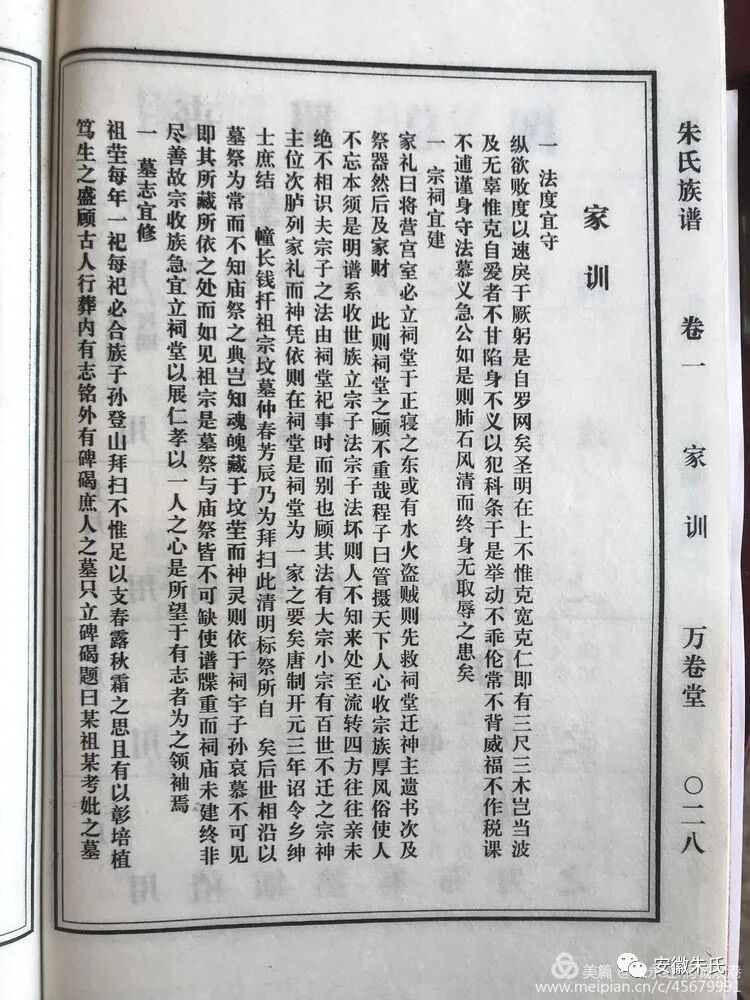 朱氏族谱 卷一 家训 万卷堂 〇二八
家训
一 法度宜守
纵欲败度以速戾于厥躬是自罗网矣圣明在上不惟克宽克仁即有三尺三木岂当波
及无辜惟克自爱者不甘陷身不义以犯科条于是举动不乖伦常不背威福不作税课
不逋谨身守法慕义急公如是则肺石风清而终身无取辱之患矣
一 宗祠宜建
家礼曰将营宫室必立祠堂于正寝之东或有水火盗贼则先救祠堂迁神主遗书次及
祭器然后及家财 此则祠堂之顾不重哉程子曰管摄天下人心收宗族厚风俗使人
不忘本须是明谱系收世族立宗子法宗子法坏则人不知来处至流转四方往往亲未
绝不相识夫宗子之法由祠堂祀事时而别也顾其法有大宗小宗有百世不迁之宗神
主位次胪列家礼而神凭依则在祠堂是祠堂为一家之要矣唐制开元三年诏令乡绅
士庶结 幢长钱扦祖宗坟墓仲春芳辰乃为拜扫此清明标祭所自 矣后世相沿以
墓祭为常而不知庙祭之典岂知魂魄藏于坟茔而神灵则依于祠宇子孙哀慕不可见
即其所藏所依之处而如见祖宗是墓祭与庙祭皆不可缺使谱牒重而祠庙未建终非
尽善故宗收族急宜立祠堂以展仁孝以一人之心是所望于有志者为之领袖焉
一 墓志宜修
祖茔每年一祀每祀必合族子孙登山拜扫不惟足以支春露秋霜之思且有以彰培植
笃生之盛顾古人行葬内有志铭外有碑碣庶人之墓只立碑碣题曰某祖某考妣之墓
安徽朱氏
美篇
www.meipian.cn/c/45679991